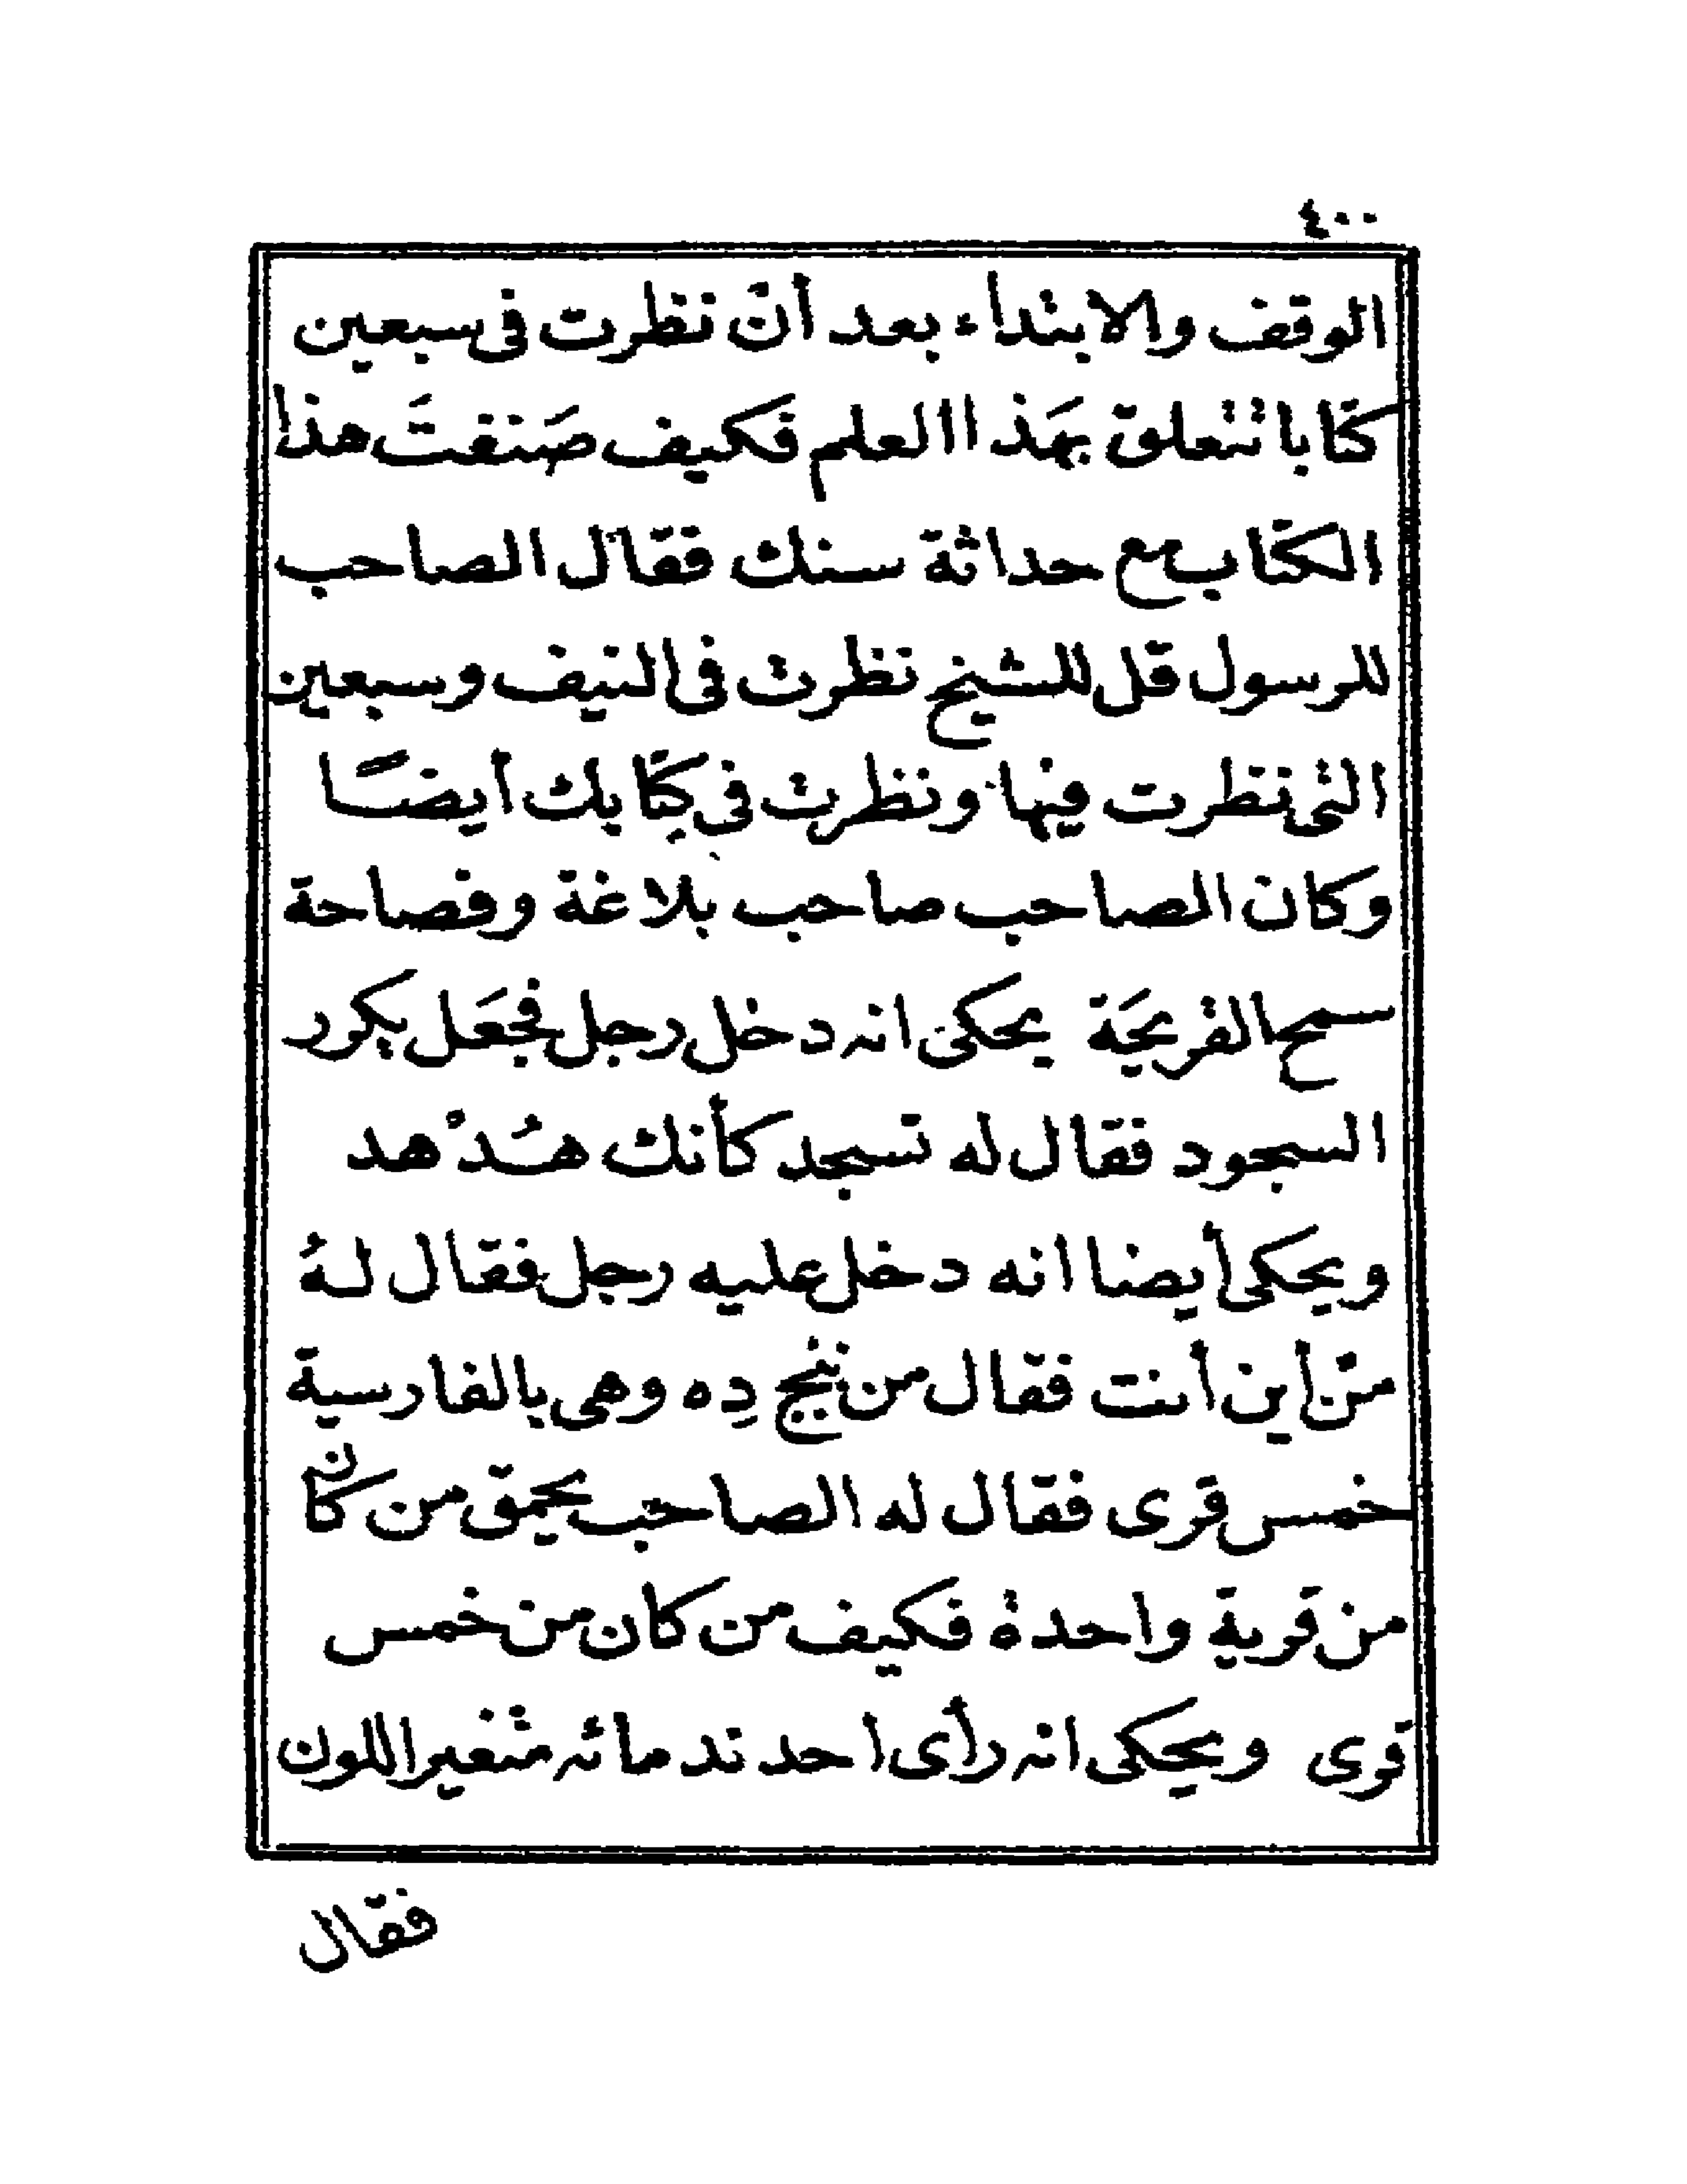 ٤٠٠
الوقف والابتداء بعد أن نظرت فى سبعين
كتابا تتعلق بهَذا العلم فكيف صَنفتَ هذا
الكتاب مع حداثة سنك فقال الصاحب
للرسول قل للشيخ نظرت فى النيف وسبعين
التى نظرت فيها ونظرت فى كِتابك أيضًا
وكان الصاحب صاحب بلاغة وفصاحة
سمح القريحَة يحكى انه دخل رجل فجعَل يكرر
السجود فقال له تسجد كأنك هُدْهد
ويحكى أيضا انه دخل عليه رجل فقال لهُ
من أين أنت فقال من پنج دِه وهى بالفارسية
خمس قرى فقال له الصاحب يحمق من كان
من قرية واحدة فكيف من كان من خمس
قرى ويحكى انه رأى احد ندمائه متغير اللون
فقال